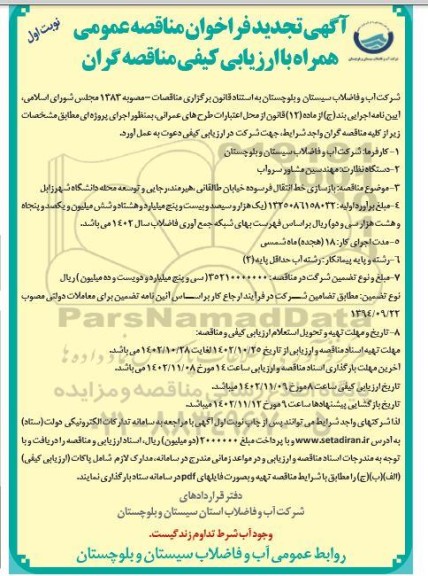 نوبت اول
آگهی تجدید فراخوان مناقصه عمومی
همراه با ارزیابی کیفی مناقصه گران
شرکت آب و فاضلاب سیستان و بلوچستان به استناد قانون برگزاری مناقصات – مصوبه ۱۳۸۳ مجلس شورای اسلامی،
آیین نامه اجرایی بند (ج) از ماده (۱۲) قانون از محل اعتبارات طرح های عمرانی، بمنظور اجرای پروژه ای مطابق مشخصات
زیر از کلیه مناقصه گران واجد شرایط، جهت شرکت در ارزیابی کیفی دعوت به عمل آورد.
۱- کارفرما: شرکت آب و فاضلاب سیستان و بلوچستان
۲- دستگاه نظارت: مهندسین مشاور سروآب
۳- موضوع مناقصه: بازسازی خط انتقال فرسوده خیابان طالقانی، هیرمند، رجایی و توسعه محله دانشگاه شهر زابل
۴- مبلغ برآورد اولیه: ۱۳۲۵۰۸۶۱۵۸۰۳۲ (یک هزار و سیصد و بیست و پنج میلیارد و هشتاد و شش میلیون و یکصد و پنجاه
و هشت هزار سی و دو) ریال بر اساس فهرست بهای شبکه جمع آوری فاضلاب سال ۱۴۰۲ می باشد.
۵- مدت اجرای کار: ۱۸ (هجده) ماه شمسی
۶- رشته و پایه پیمانکار: رشته آب حداقل پایه (۲)
۷- مبلغ و نوع تضمین شرکت در مناقصه: ۳۵۲۱۰۰۰۰۰۰۰ (سی و پنج میلیارد و دویست و ده میلیون) ریال
نوع تضمین: مطابق تضامین شرکت در فرآیند ارجاع کار بر اساس آئین نامه تضمین برای معاملات دولتی مصوب
۱۳۹۴/۰۹/۲۲
۸- تاریخ و مهلت تهیه و تحویل استعلام ارزیابی کیفی و مناقصه:
مهلت تهیه اسناد مناقصه و ارزیابی از تاریخ ۱۴۰۲/۱۰/۲۵ لغایت ۱۴۰۲/۱۰/۲۸ می باشد.
آخرین مهلت بارگذاری اسناد مناقصه و ارزیابی ساعت ۱۴ مورخ ۱۴۰۲/۱۱/۰۸ می باشد.
تاریخ ارزیابی کیفی ساعت ۸ مورخ ۱۴۰۲/۱۱/۰۹ میباشد.
تاریخ بازگشایی پیشنهادها ساعت ۹ مورخ ۱۴۰۲/۱۱/۱۲ میباشد.
لذا شرکتهای واجد شرایط می توانند پس از چاپ نوبت اول آگهی با مراجعه به سامانه تدارکات الکترونیکی دولت (ستاد)
به آدرس www.setadiran.ir و با پرداخت مبلغ ۲۰۰۰۰۰۰ (دو میلیون) ریال، اسناد ارزیابی و مناقصه را دریافت و با
توجه به مندرجات اسناد مناقصه و ارزیابی و در مواعد زمانی مندرج در سامانه، مدارک لازم شامل پاکات (ارزیابی کیفی)
(الف)(ب)(ج) را مطابق با شرایط مناقصه تهیه و بصورت فایلهای pdf در سامانه ستاد بارگذاری نمایند.
دفتر قراردادهای
شرکت آب و فاضلاب استان سیستان و بلوچستان
وجود آب شرط تداوم زندگیست.
روابط عمومی آب و فاضلاب سیستان و بلوچستان